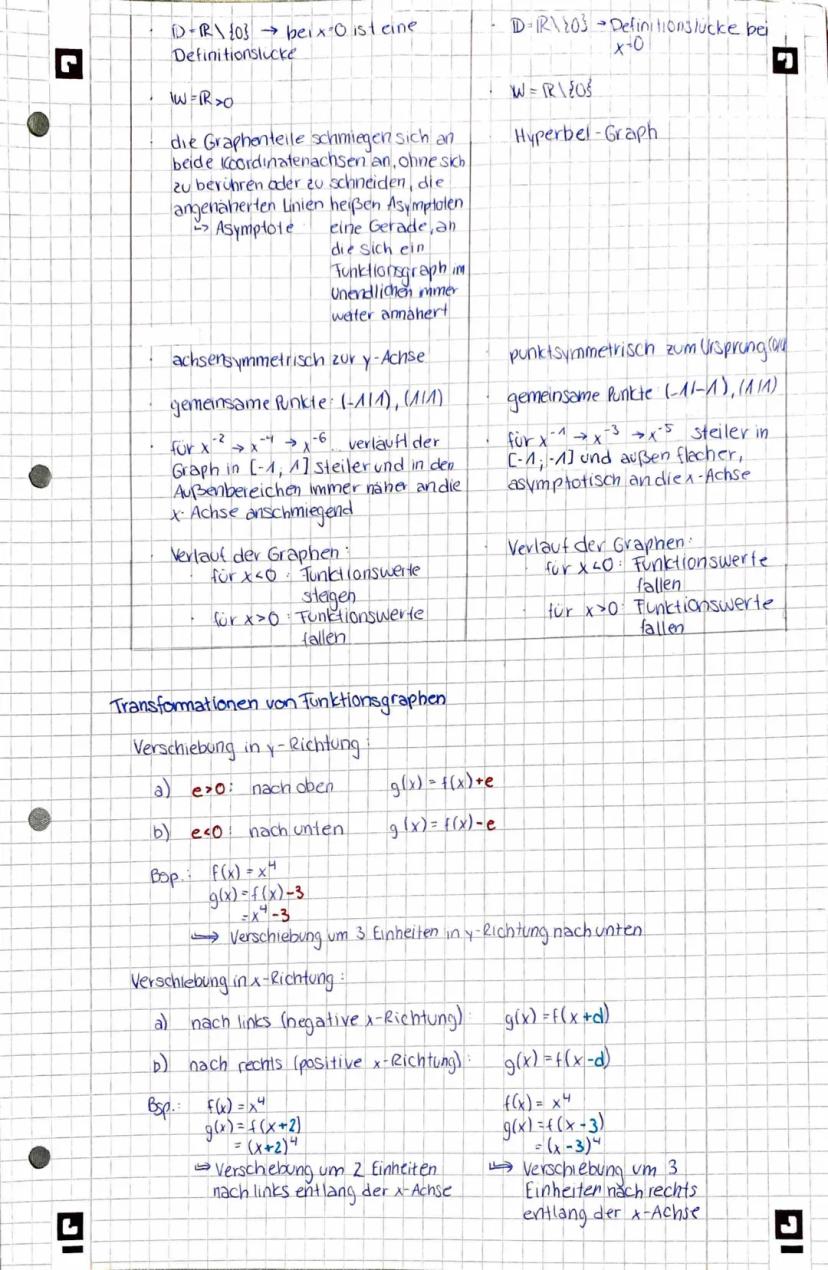 · D = ℝ\{0} → bei x=0 ist eine
Definitionslücke
· W = ℝ>0
· die Graphenteile schmiegen sich an
beide Koordinatenachsen an, ohne sich
zu berühren oder zu schneiden, die
angenäherten Linien heißen Asymptoten
↳ Asymptote eine Gerade, an
die sich ein
Funktionsgraph im
Unendlichen immer
weiter annähert
· achsensymmetrisch zur y-Achse
· gemeinsame Punkte: (-1|1), (1|1)
· für x⁻² → x⁻⁴ → x⁻⁶... verläuft der
Graph in [-1, 1] steiler und in den
Außenbereichen immer näher an die
x-Achse anschmiegend
· Verlauf der Graphen:
· für x<0: Funktionswerte
steigen
· für x>0: Funktionswerte
fallen
· D = ℝ\{0} → Definitionslücke bei
x=0
· W = ℝ\{0}
Hyperbel-Graph
punktsymmetrisch zum Ursprung (0|0)
gemeinsame Punkte (-1|-1), (1|1)
· für x⁻¹ → x⁻³ → x⁻⁵ steiler in
[-1; -1] und außen flacher,
asymptotisch an die x-Achse
· Verlauf der Graphen:
· für x<0: Funktionswerte
fallen
· für x>0: Funktionswerte
fallen
Transformationen von Funktionsgraphen
Verschiebung in y-Richtung:
a) e>0: nach oben g(x) = f(x)+e
b) e<0: nach unten g(x) = f(x)-e
Bsp.: f(x) = x⁴
g(x) = f(x)-3
= x⁴-3
↪ Verschiebung um 3 Einheiten in y-Richtung nach unten
Verschiebung in x-Richtung:
a) nach links (negative x-Richtung): g(x) = f(x+d)
b) nach rechts (positive x-Richtung): g(x) = f(x-d)
Bsp.: f(x) = x⁴
g(x) = f(x+2)
= (x+2)⁴
↪ Verschiebung um 2 Einheiten
nach links entlang der x-Achse
f(x) = x⁴
g(x) = f(x-3)
= (x-3)⁴
↪ Verschiebung um 3
Einheiten nach rechts
entlang der x-Achse